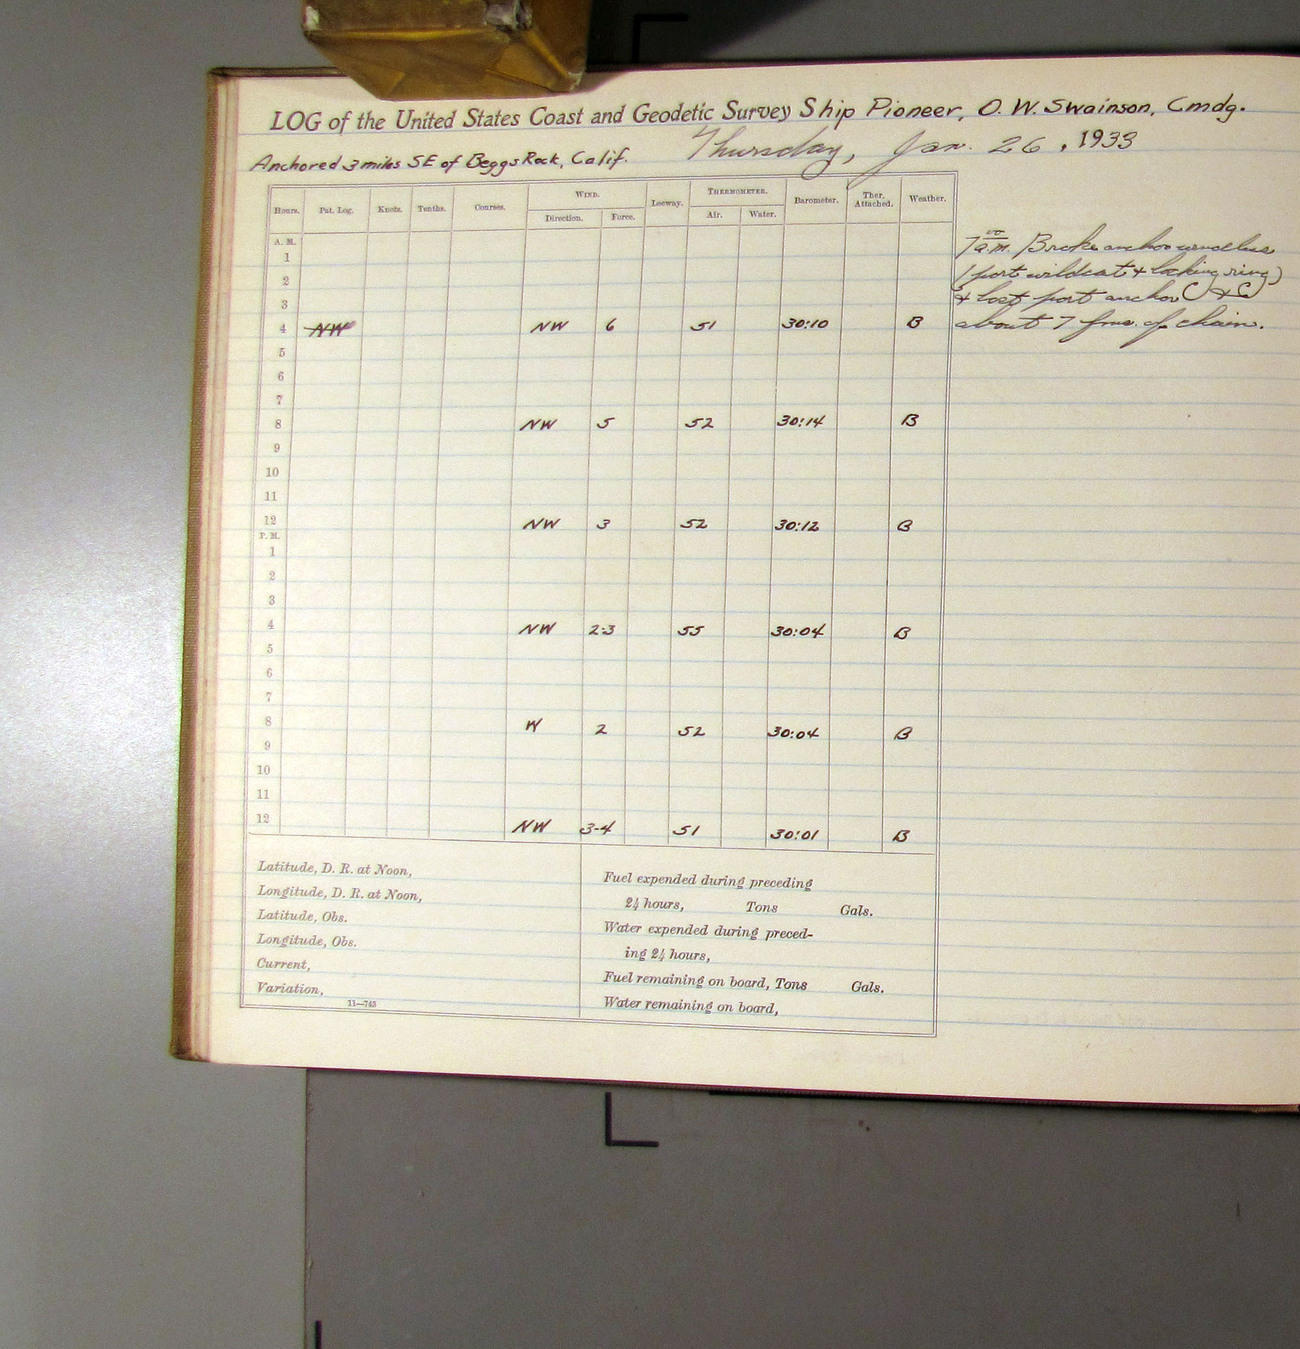 LOG of the United States Coast and Geodetic Survey Ship Pioneer, O. W. Swainson, Cmdg.
Anchored 3 miles SE of Beggs Rock, Calif. Thursday, Jan. 26, 1933
WIND. THERMOMETER.
Hours. Pat. Log. Knots. Tenths. Courses. Direction. Force. Leeway. Air. Water. Barometer. Ther. Attached. Weather.
A. M.
1
2
3
4 NW NW 6 51 30:10 B
5
6
7
8 NW 5 52 30:14 B
9
10
11
12 NW 3 52 30:12 B
P. M.
1
2
3
4 NW 2-3 55 30:04 B
5
6
7
8 W 2 52 30:04 B
9
10
11
12 NW 3-4 51 30:01 B
7 00 a.m. Broke anchor windlass
(port wildcat & locking ring)
& lost port anchor &
about 7 fms. of chain.
Latitude, D. R. at Noon,
Longitude, D. R. at Noon,
Latitude, Obs.
Longitude, Obs.
Current,
Variation,
11—743
Fuel expended during preceding
24 hours, Tons Gals.
Water expended during preced-
ing 24 hours,
Fuel remaining on board, Tons Gals.
Water remaining on board,